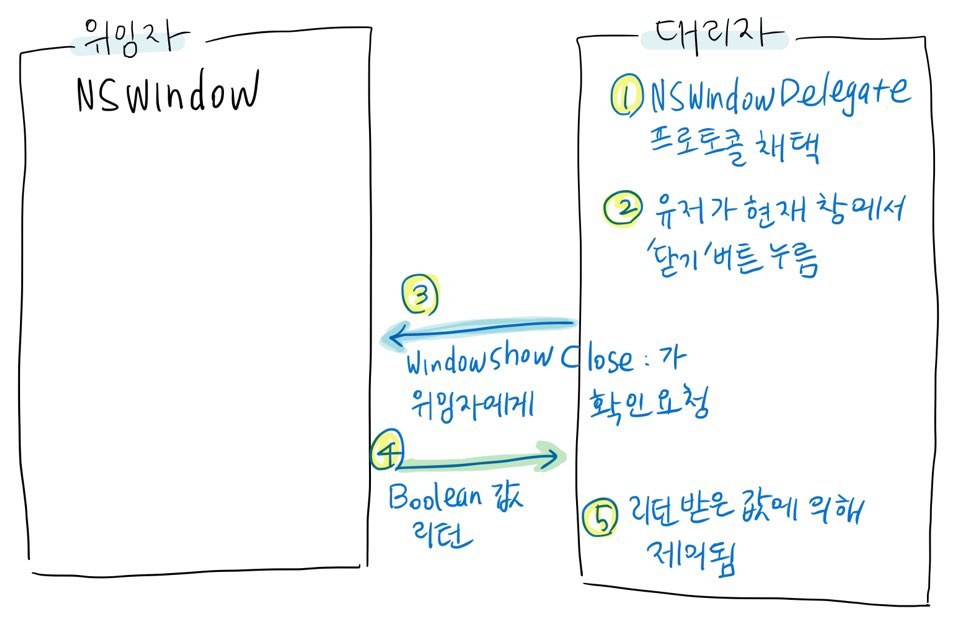 위임자
NSWindow
대리자
① NSWindowDelegate
프로토콜 채택
② 유저가 현재 창에서
'닫기'버튼 누름
③
WindowshowClose : 가
위임자에게 확인요청
④
Boolean 값
리턴
⑤ 리턴 받은 값에 의해
제어됨